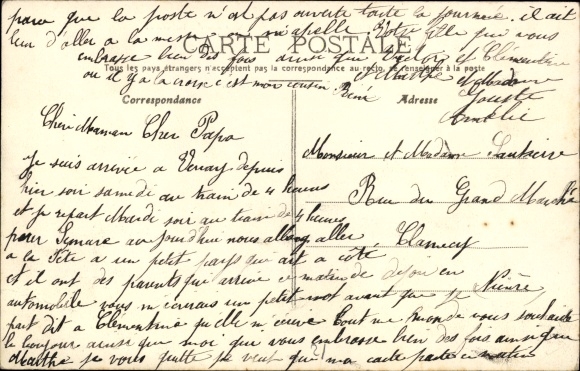 parce que la poste n'est pas ouverte toute la journée. il ait
leur d'aller a la messe on m'apelle Votre fille qui vous
embrasse bien des fois ainsi que Victor et Clementine
CARTE POSTALE
Tous les pays étrangers n'acceptent pas la correspondance au recto, se renseigner à la poste
ou il y a la c'est mon cousin René
Marthe et Madame
Amélie
Correspondance
Adresse
Cher Maman Cher Papa
Je suis arrivée a depuis
hier soir samedi au train de 4 heures
et je repart Mardi soir au train de 4 heures
pour aujourd'hui nous allons aller
a la Fête a un petit pays qui ait a côté
et il ont des parents qui arrive ce matin de dijon en
automobile vous m'enverrais un petit mot avant que je
part dit a Clementine qu'elle m'ecrive tout le monde vous souhaite
le bonjour ainsi que moi qui vous embrasse bien des fois ainsi que
Marthe je vous quitte je veut que ma carte parte ce matin
Monsieur et Madame
Rue du Grand Marché
Clamecy
Nièvre